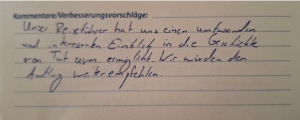 Kommentare/Verbesserungsvorschläge:
Unser Reiseführer hat uns einen umfassenden
und interessanten Einblick in die Geschichte
von ermöglicht. Wir würden den
Ausflug weiterempfehlen.